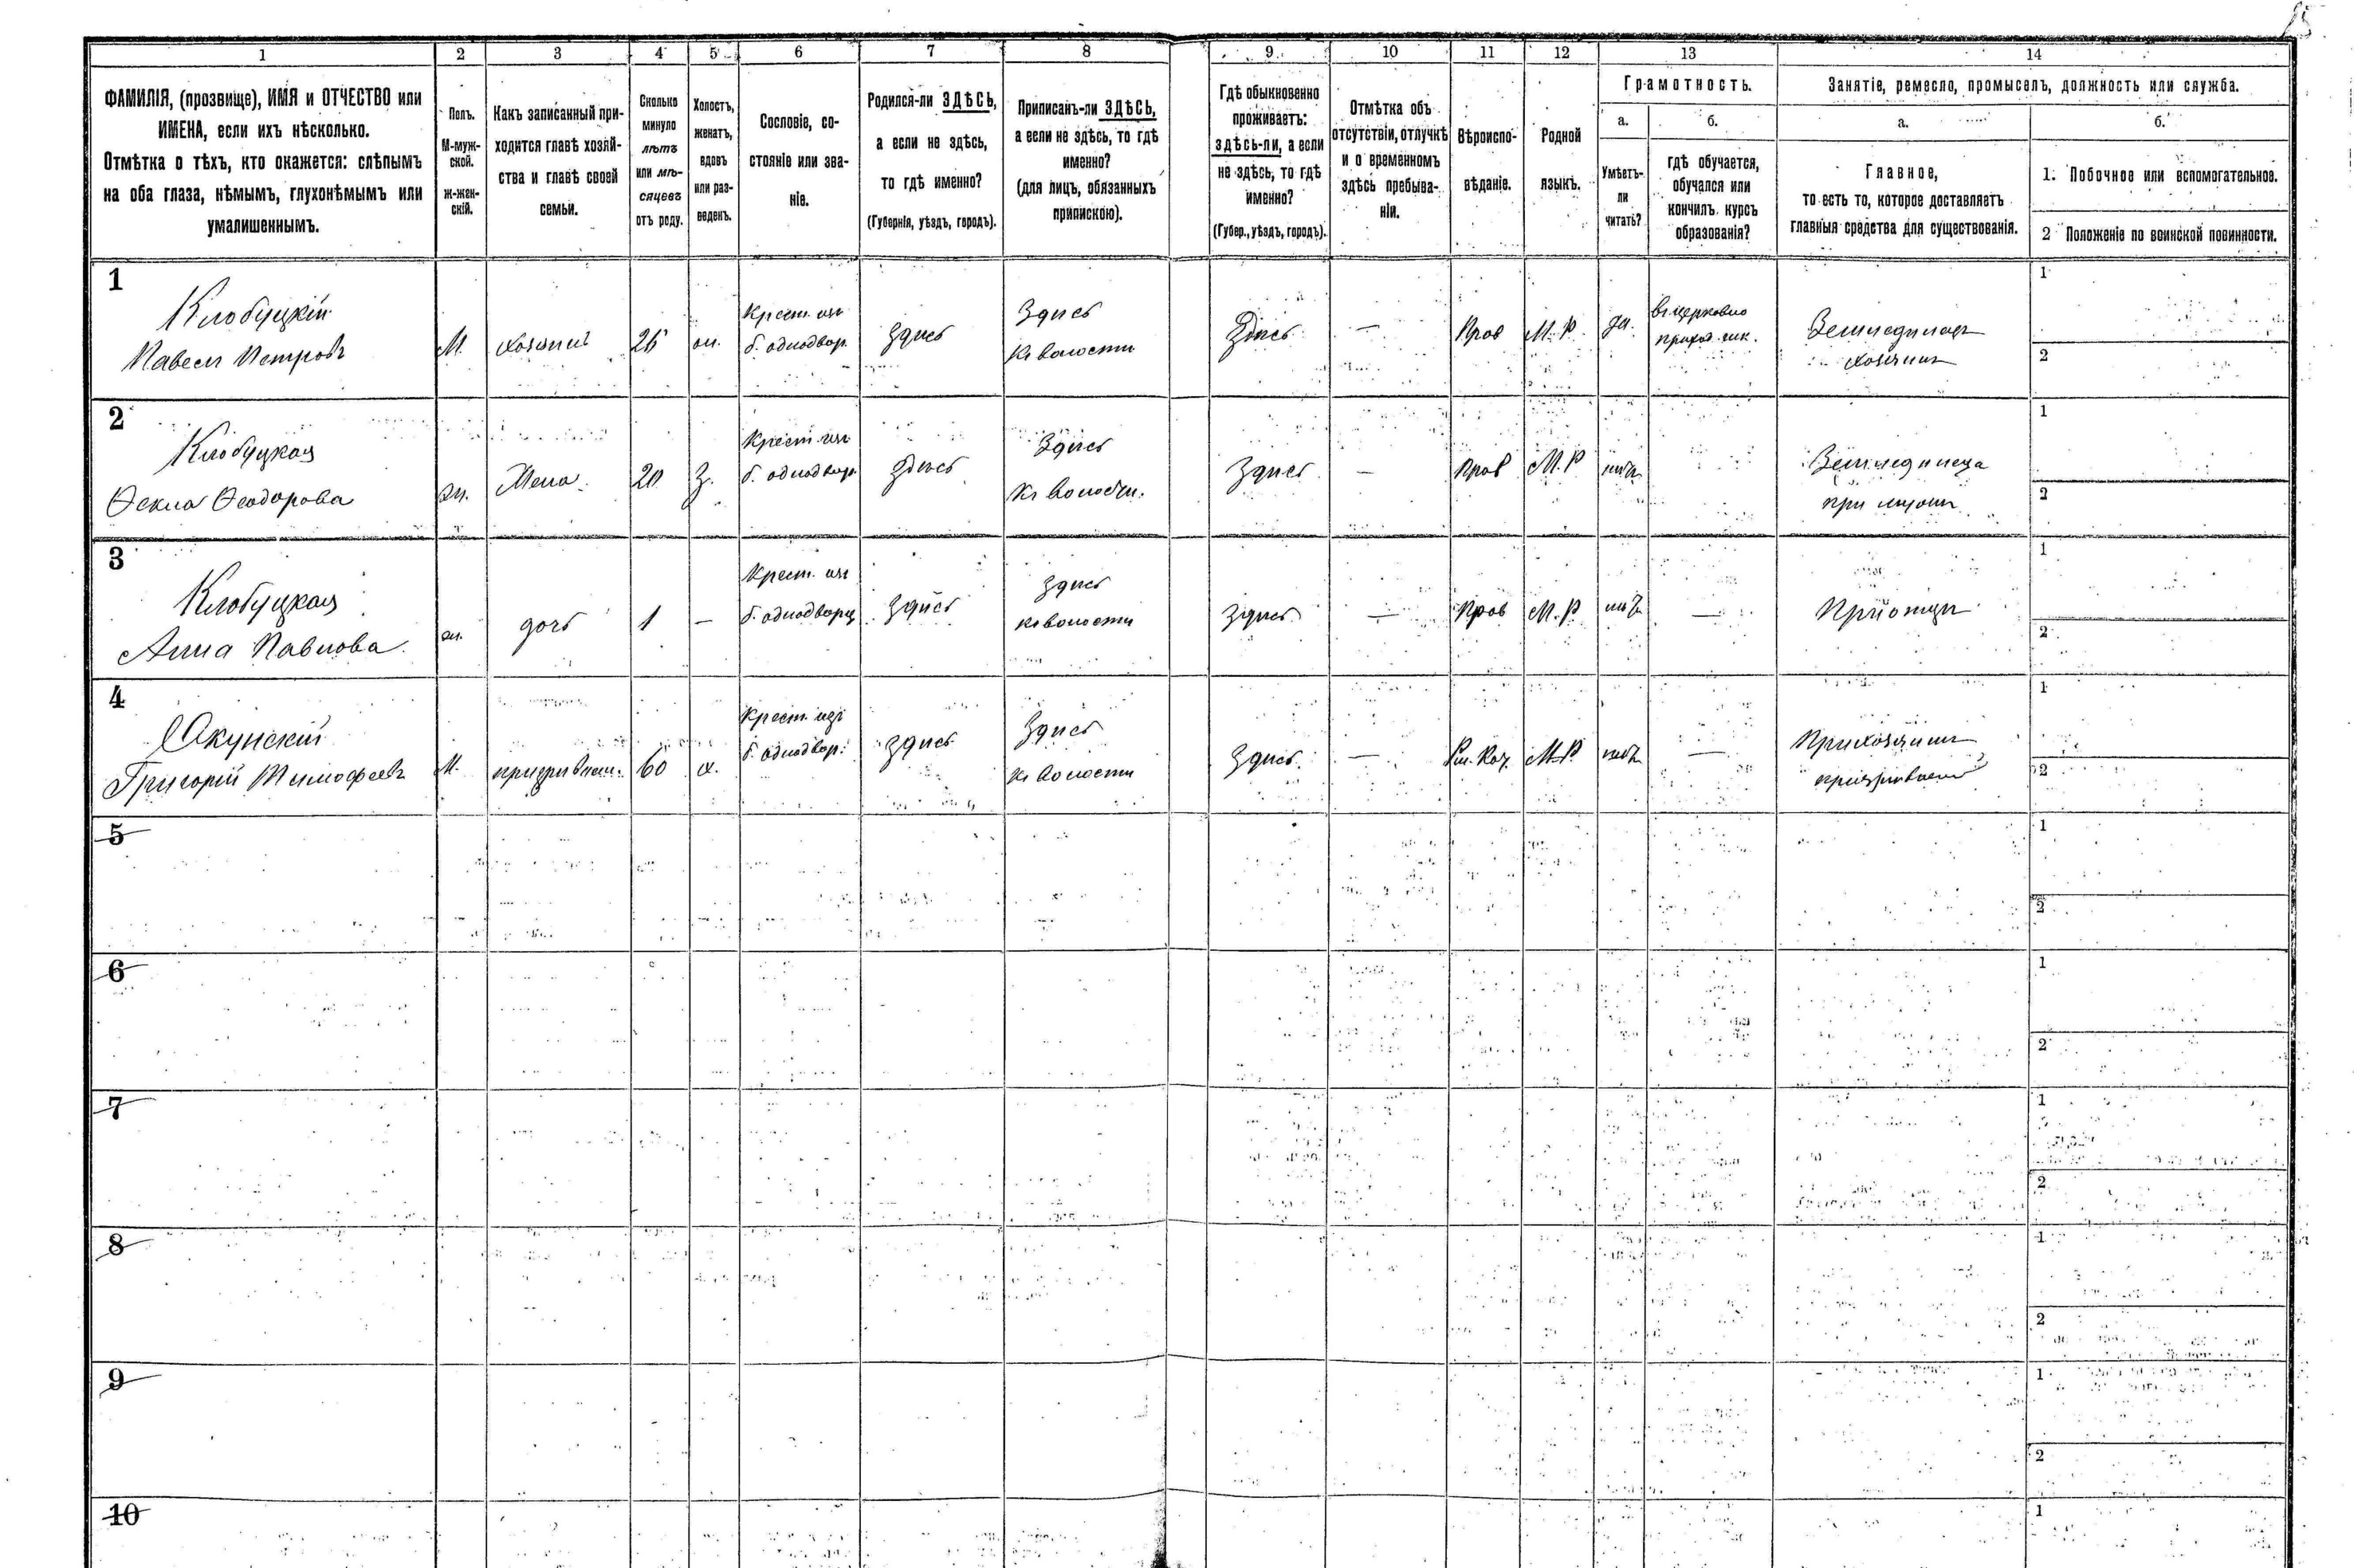 15
1 2 3 4 5 6 7 8 9 10 11 12 13 14
ФАМИЛІЯ, (прозвище), ИМЯ и ОТЧЕСТВО или
ИМЕНА, если ихъ нѣсколько.
Отмѣтка о тѣхъ, кто окажется: слѣпымъ
на оба глаза, нѣмымъ, глухонѣмымъ или
умалишеннымъ.
Полъ.
М-муж-
ской.
Ж-жен-
скій.
Какъ записанный при-
ходится главѣ хозяй-
ства и главѣ своей
семьи.
Сколько
минуло
лѣтъ
или мѣ-
сяцевъ
отъ роду.
Холостъ,
женатъ,
вдовъ
или раз-
веденъ.
Сословіе, со-
стояніе или зва-
ніе.
Родился-ли ЗДѢСЬ,
а если не здѣсь,
то гдѣ именно?
(Губернія, уѣздъ, городъ).
Приписанъ-ли ЗДѢСЬ,
а если не здѣсь, то гдѣ
именно?
(для лицъ, обязанныхъ
припискою).
Гдѣ обыкновенно
проживаетъ:
здѣсь-ли, а если
не здѣсь, то гдѣ
именно?
(Губер., уѣздъ, городъ).
Отмѣтка объ
отсутствіи, отлучкѣ
и о временномъ
здѣсь пребыва-
ніи.
Вѣроиспо-
вѣданіе.
Родной
языкъ.
Грамотность.
а.
Умѣетъ-
ли
читать?
б.
гдѣ обучается,
обучался или
кончилъ курсъ
образованія?
Занятіе, ремесло, промыселъ, должность или служба.
а.
Главное,
то есть то, которое доставляетъ
главныя средства для существованія.
б.
1. Побочное или вспомогательное.
2 Положеніе по воинской повинности.
1
Клобуцкій
Павелъ Петровъ
М.
хозяинъ
26
ж.
Крест. изъ
б. однодвор.
Здѣсь
Здѣсь
къ волости
Здѣсь
—
Прав
М. Р.
да.
въ церковно
приход. шк.
Земледѣлецъ
хозяинъ
1
2
2
Клобуцкая
Ѳекла Ѳеодорова
ж.
Жена
20
З.
Крест. изъ
б. однодвор.
Здѣсь
Здѣсь
къ волости.
Здѣсь
—
Прав
М. Р
нѣтъ
Земледѣлица
при мужѣ
1
2
3
Клобуцкая
Анна Павлова
ж.
дочь
1
—
Крест. изъ
б. однодворц
Здѣсь
Здѣсь
къ волости
Здѣсь
—
Прав
М. Р.
нѣтъ
—
При отцѣ
1
2
4
Окунскій
Григорій Тимофеевъ
М.
призрѣваем.
60
х.
Крест. изъ
б. однодвор.
Здѣсь
Здѣсь
къ волости
Здѣсь
—
Рим. Кат.
М. Р.
нѣтъ
—
При хозяинѣ
призрѣваем
1
2
5
1
2
6
1
2
7
1
2
8
1
2
9
1
2
10
1